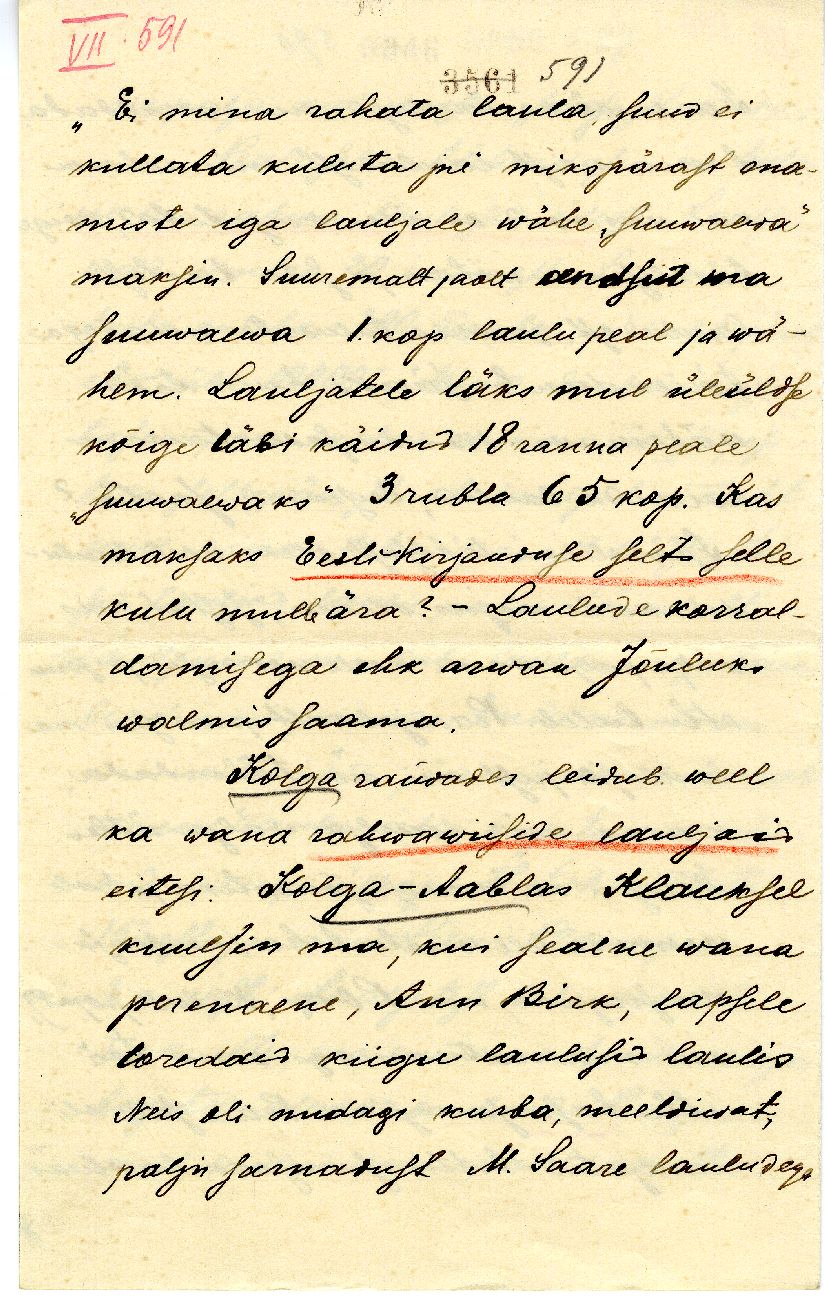 VII. 591
3561 591
„Ei mina rahata laula, suud ei
kullata kuluta jne mikspärast ena-
miste iga lauljale wähe „suuwaewa”
maksin. Suuremalt jaolt andsin ma
suuwaewa 1. kop laulu peal ja wä-
hem. Lauljatele läks mul üleüldse
kõige läbi käidud 18 ranna peale
„suuwaewaks” 3 rubla 65 kop. Kas
maksaks Eesti Kirjanduse selts selle
kulu mulle ära? – Laulude korral-
damisega ehk arwan Jõuluks
walmis saama.
Kolga randades leidub weel
ka wana rahwawiiside lauljaid
eitesi. Kolga-Aablas Klauksel
kuulsin ma, kui sealne wana
perenaene, Ann Birk, lapsele
toredaid kiigu laulusid laulis
Neis oli midagi kurba, meeldiwat,
palju sarnadust M. Saare lauludega